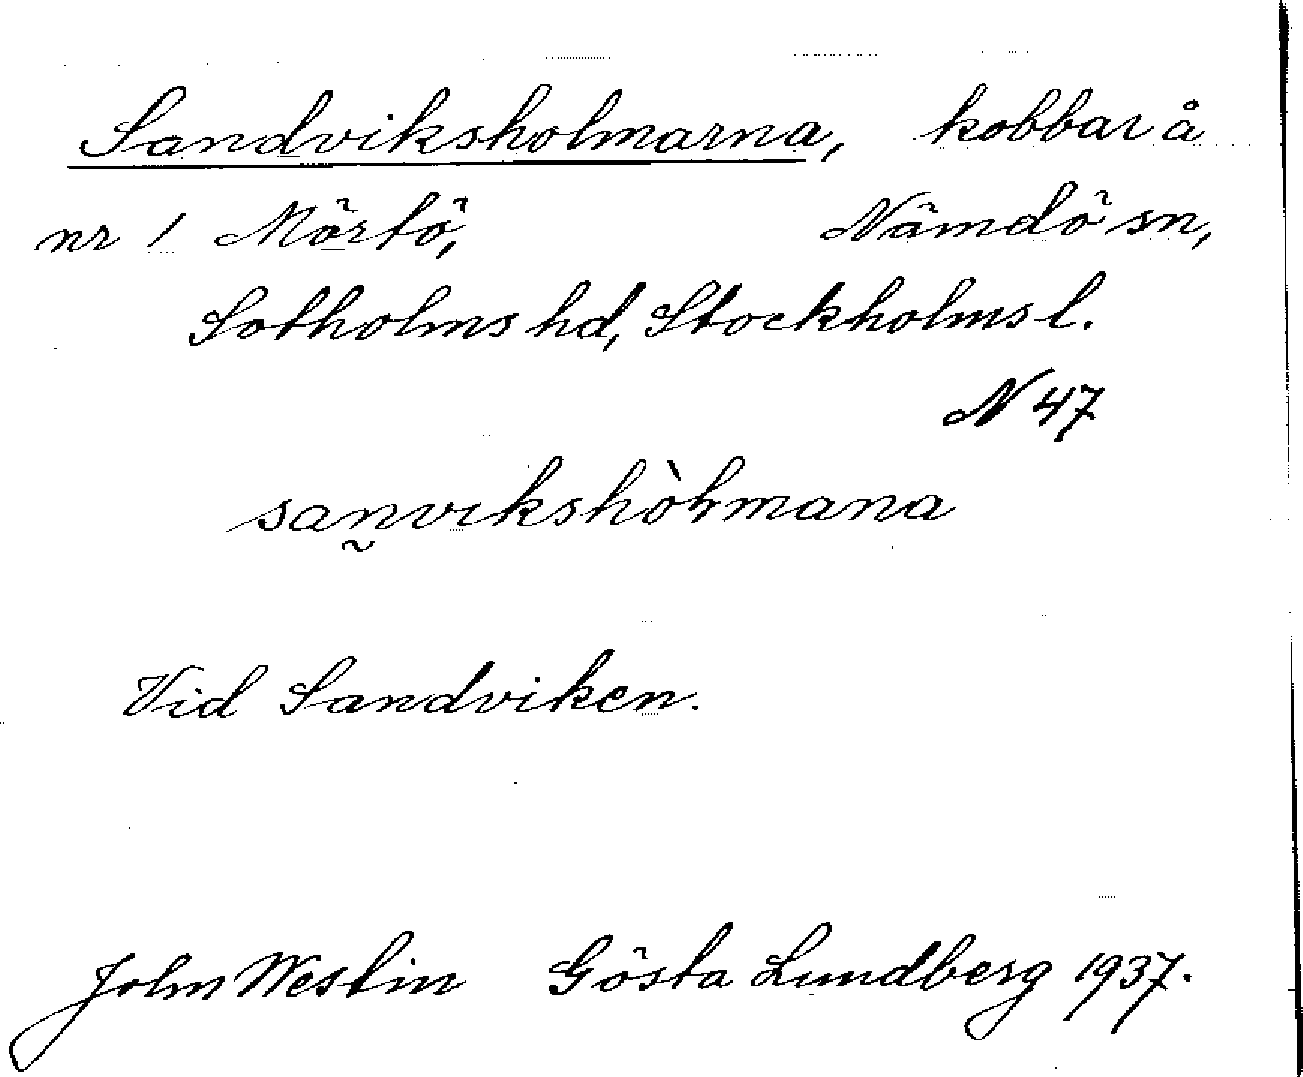 Sandviksholmarna, kobbar å
nr 1 Mörtö, Nämdö sn,
Sotholms hd, Stockholms l.
N 47
san̰vikshòlmana
Vid Sandviken.
John Westin Gösta Lundberg 1937.